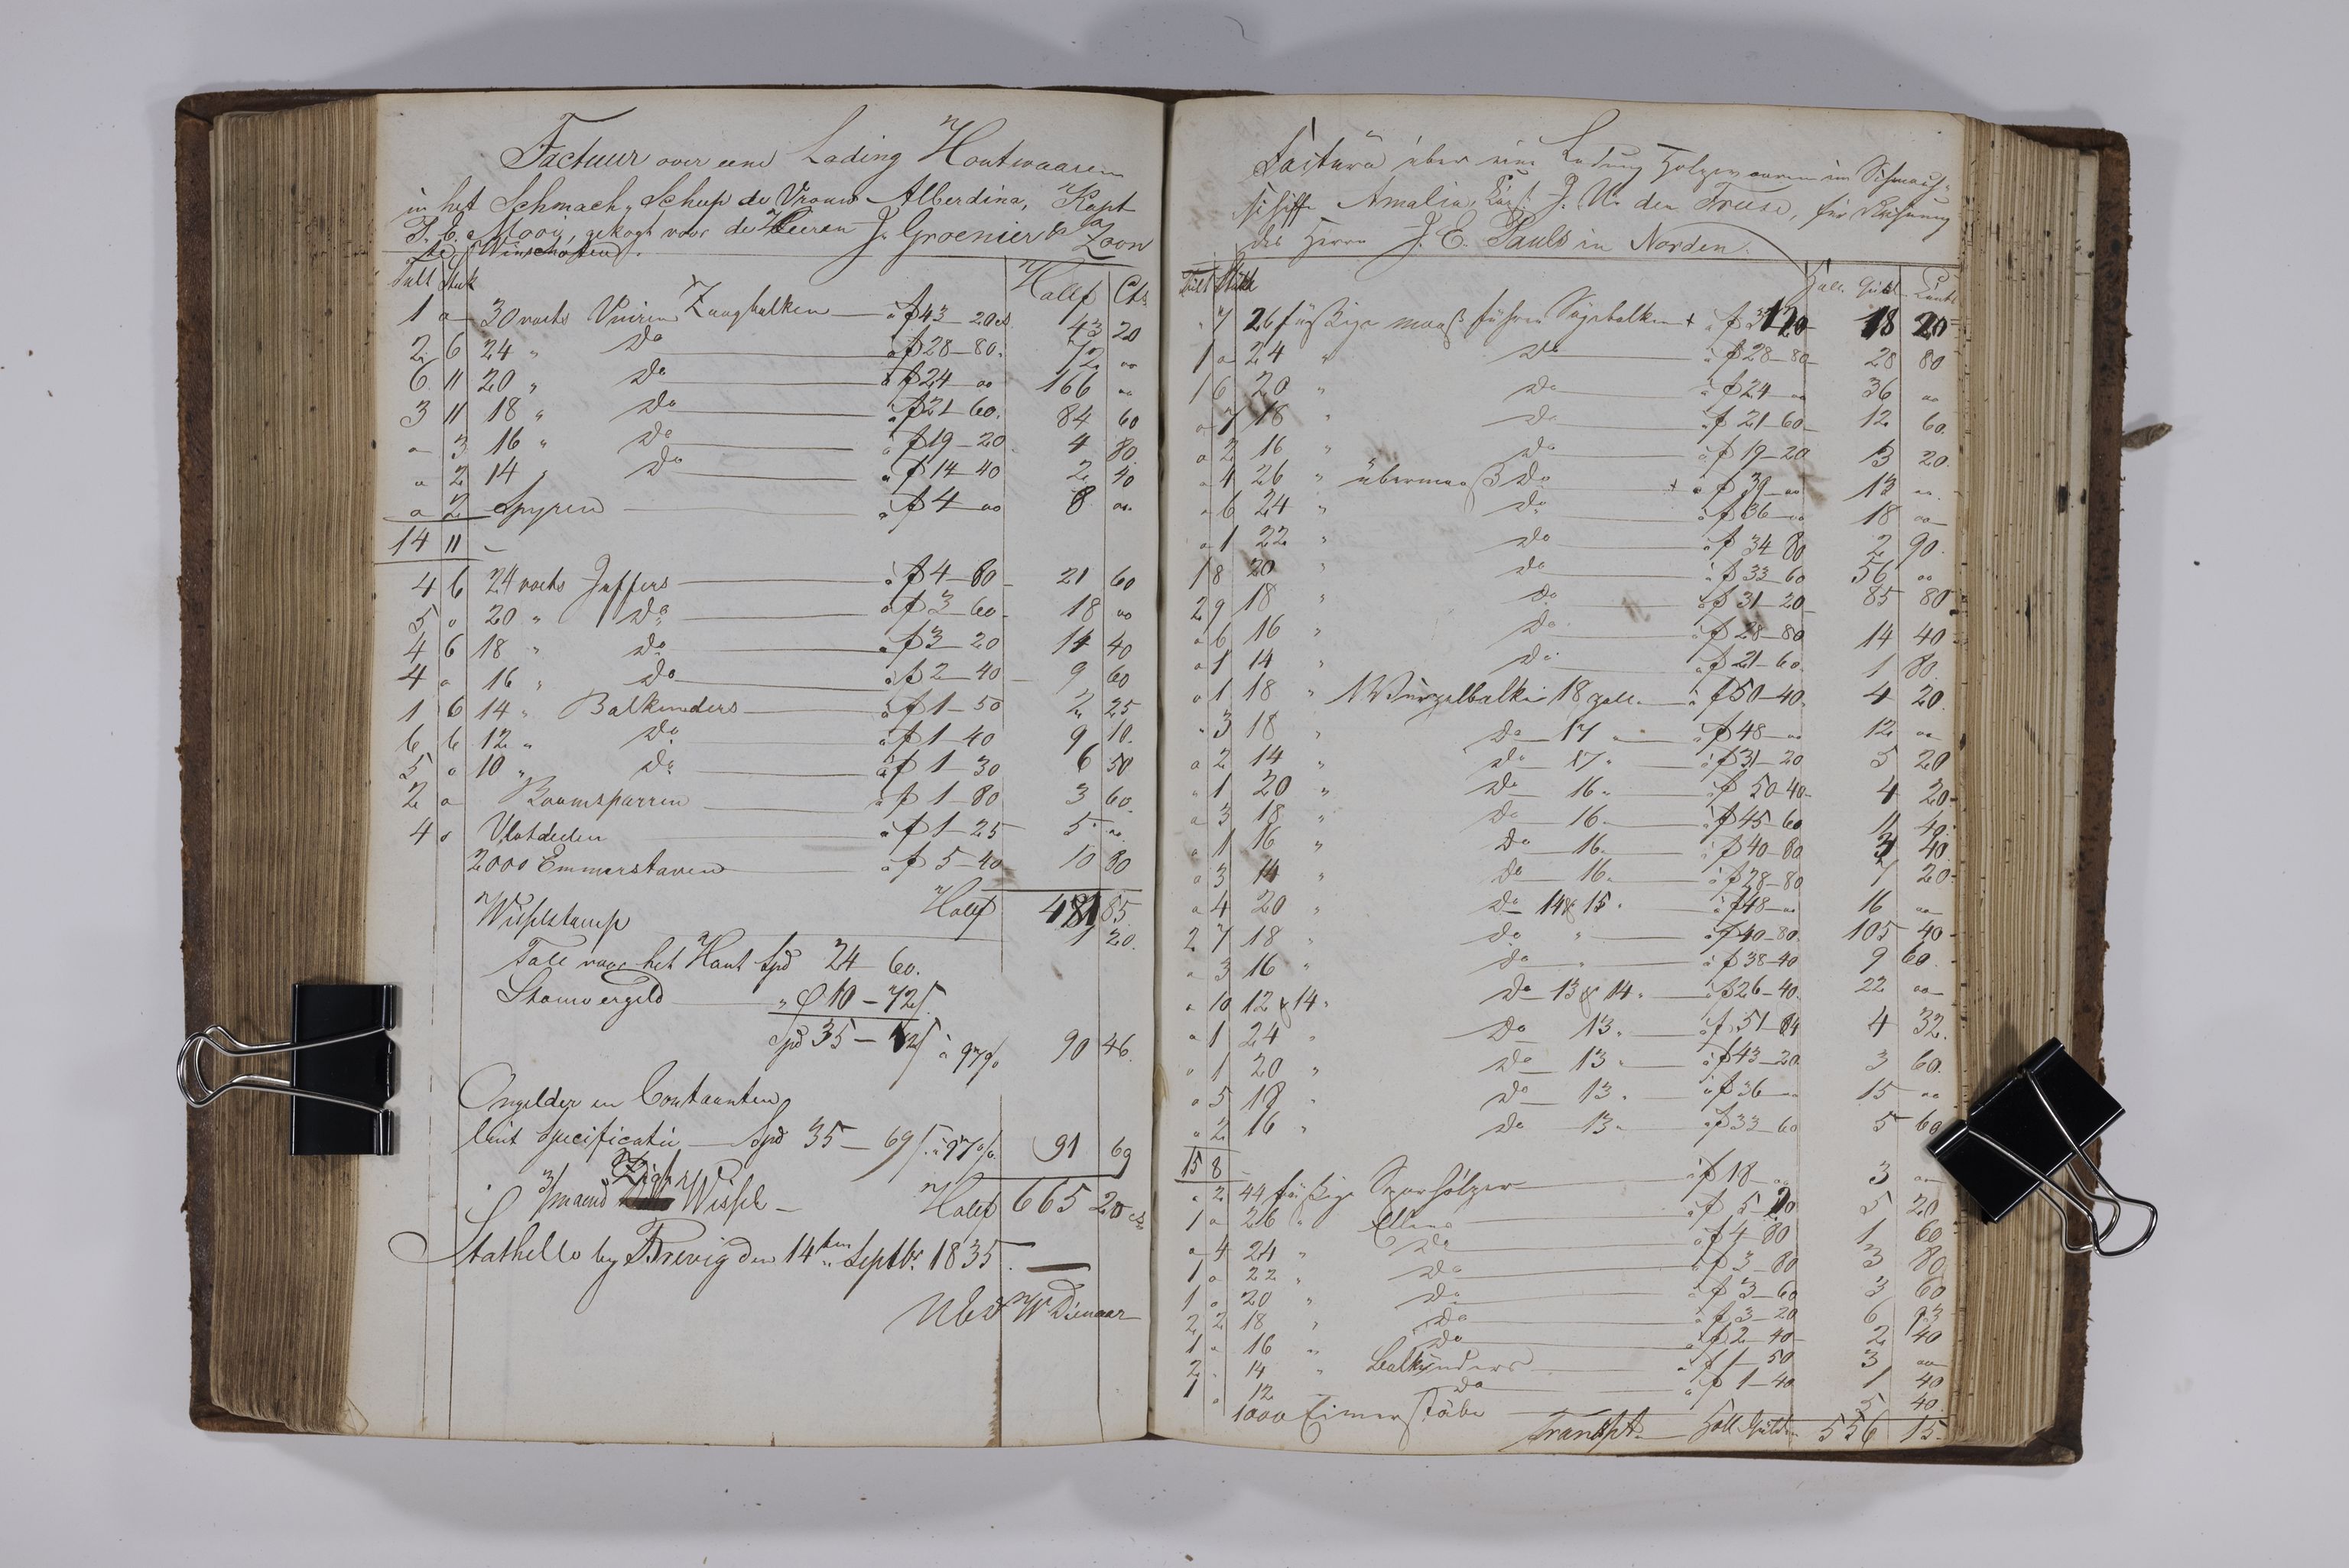 Factuur over eene Lading Houtwaaren
in het Schmack-Schep de Vrouw Alberdina, Kapt
T. C. Mooi, gekogt voor de Heeren J. Groenier & Zoon
te Winschoten.
Tult Stuk Hollf Cts
1 o 30 voets Vuiren Zaagbalken à f 43-20 43 20
2 6 24 " Do à f 28-80. 72 oo
6 11 20 " Do à f 24 oo 166 oo
3 11 18 " Do à f 21-60. 84 60
o 3 16 " Do à f 19-20 4 80
o 2 14 " Do à f 14-40 2 40
o 2 Spyren à f 4 oo 8 oo
14 11
4 6 24 voets Juffers à f 4-80 21 60
5 o 20 " Do à f 3-60 18 oo
4 6 18 " Do à f 3-20 14 40
4 o 16 " Do à f 2-40 9 60
1 6 14 " Balkenders à f 1-50 2 25
6 6 12 " Do à f 1-40 9 10
5 o 10 " Do à f 1-30 6 50
2 o Boomsparren à f 1-80 3 60
4 o Vlotdeelen à f 1-25 5 oo
2000 Emmerstaven à f 5-40 10 80
Hollf 481 85
Wisselstemp 1 20.
Toll voor het Hout Spd 24 60.
Stouwergeld " 10-72
Spd 35-12 à 97% 90 46.
Ongelder en Contaanten
luit Specificatie Spd 35-69 à 97% 91 69
3/maend Zigt Wissel Hollf 665 20 cts
Stathelle by Brevig den 14ten Septbr. 1835.
UEd WW Dienaar
Factura über eine Ladung Holzwaaren im Schmack-
schiffe Amalia, Capt. J. U. den Freese, für Rechnung
des Herrn J. E. Pauls in Norden.
Tult Stück Holl. Guld. Cents
" 7 26 füßige maaß föhren Sägebalken + à f 31 20 18 20
1 o 24 " Do à f 28-80 28 80
1 6 20 " Do à f 24 oo 36 oo
o 7 18 " Do à f 21-60 12 60
o 2 16 " Do à f 19-20 3 20
o 4 26 " übermaaß Do + à f 39 oo 13 oo
o 6 24 " Do à f 36 oo 18 oo
o 1 22 " Do à f 34 80 2 90
1 8 20 " Do à f 33-60 56 oo
2 9 18 " Do à f 31-20 85 80
o 6 16 " Do à f 28-80 14 40
o 1 14 " Do à f 21-60 1 80
o 1 18 " Würzelbalke 18 zoll. à f 50-40 4 20
" 3 18 " Do 17 " à f 48 oo 12 oo
o 2 14 " Do 17 " à f 31-20 5 20
" 1 20 " Do 16 " à f 50-40 4 20
o 3 18 " Do 16 à f 45-60 11 40
o 1 16 " Do 16 à f 40-80 3 40
o 3 14 " Do 16 à f 28-80 7 20
o 4 20 " Do 14 & 15 " à f 48 oo 16 oo
2 7 18 " Do " à f 40-80 105 40
o 3 16 " Do " à f 38-40 9 60
o 10 12 & 14 " Do 13 & 14 " à f 26-40 22 oo
o 1 24 " Do 13 " à f 51-84 4 32
o 1 20 " Do 13 à f 43-20 3 60
o 5 18 " Do 13 " à f 36 oo 15 oo
o 2 16 " Do 13 " à f 33-60 5 60
15 8
o 2 44 füßige Sparhölzer à f 18 oo 3 oo
1 o 26 " Ellens à f 5-20 5 20
o 4 24 " Do à f 4-80 1 60
1 o 22 " Do à f 3-80 3 80
1 o 20 " Do à f 3-60 3 60
2 2 18 " Do à f 3-20 6 93
1 o 16 " Do à f 2-40 2 40
2 " 14 " Balkenders à f 1-50 3 oo
1 o 12 " Do à f 1-40 1 40
1000 Eimerstäbe 5 40
Transpt. Holl. Gulden 556 15